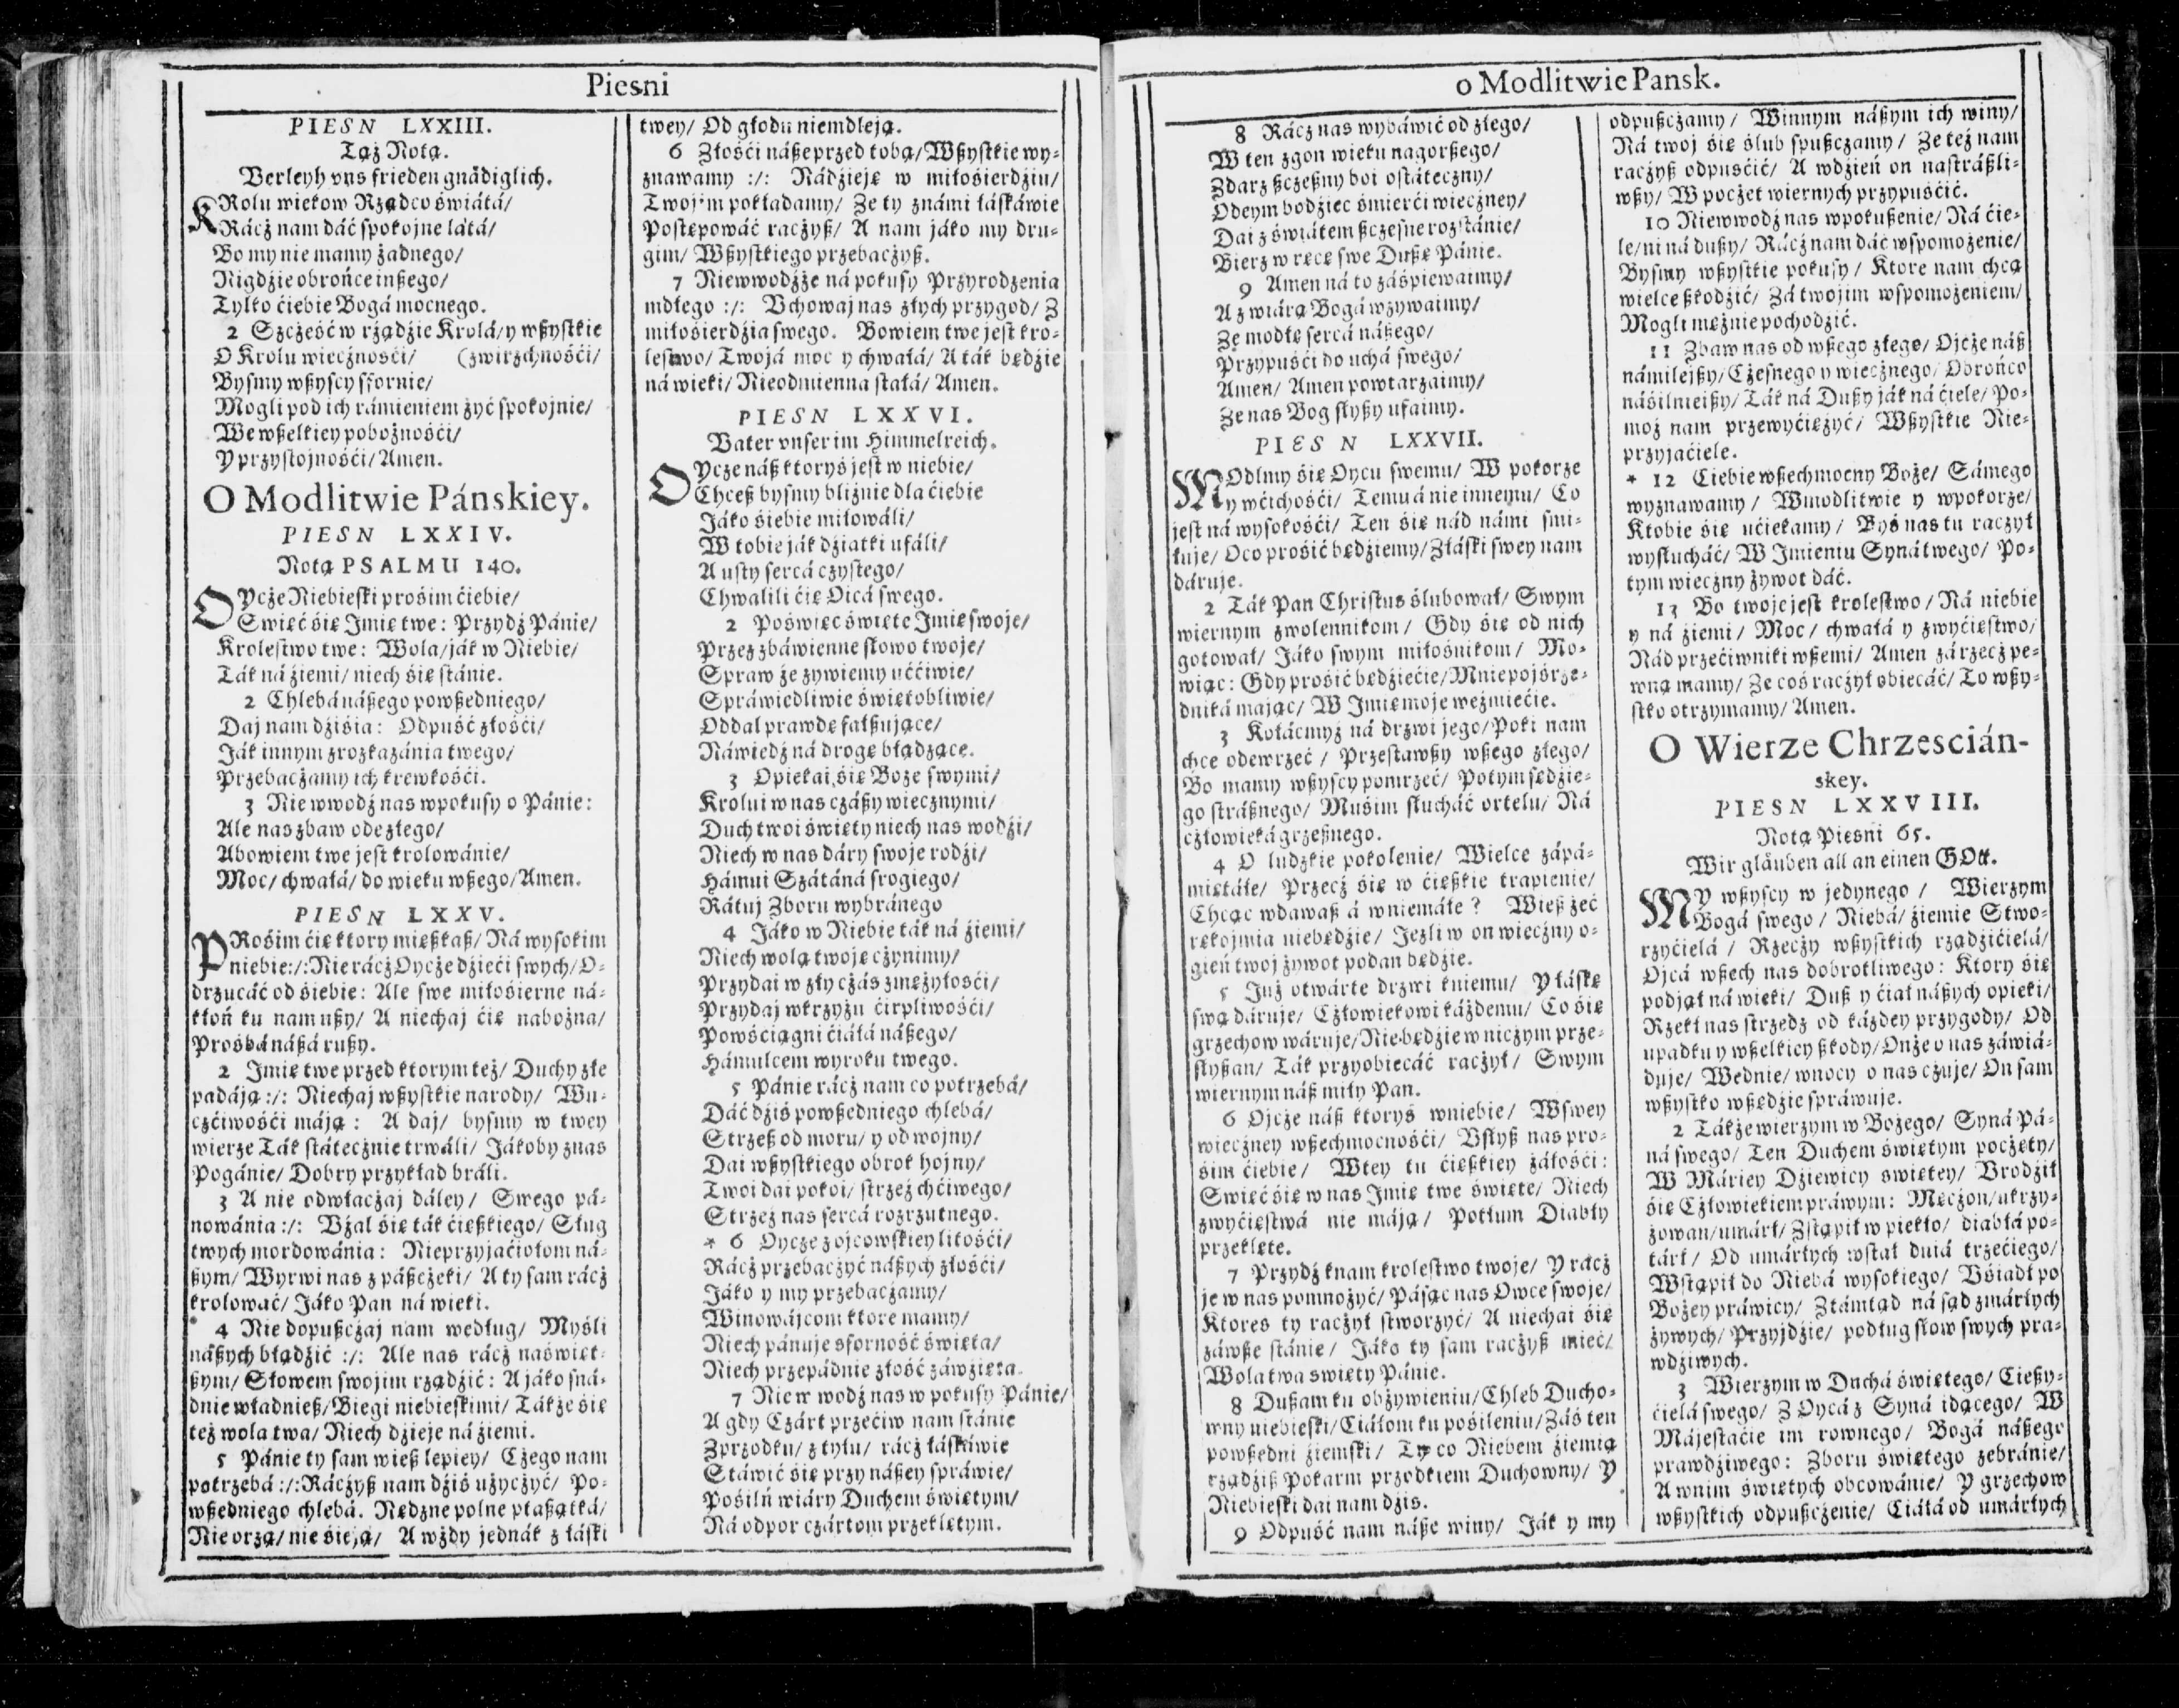 Piesni
PIESN LXXIII.
Taż Notą.
Verleyh vns frieden gnädiglich.
KRolu wiekow Rządco świátá/
Rácż nam dáć spokojne látá/
Bo my nie mamy żadnego/
Nigdźie obrońce inßego/
Tylko ćiebie Bogá mocnego.
2 Szcżęść w rżądźie Krolá/ y wßystkie
O Krolu wiecżnośći/ (zwirzchnośći/
Bysmy wßyscy sfornie/
Mogli pod ich rámieniem żyć spokojnie/
We wßelkiey pobożnośći/
Y przystojnośći/ Amen.
O Modlitwie Pánskiey.
PIESN LXXIV.
Notą PSALMU 140.
OYcże Niebieski prośim ćiebie/
Swięć śię Jmię twe: Przydź Pánie/
Krolestwo twe: Wola/ ják w Niebie/
Ták ná źiemi/ niech śię stánie.
2 Chlebá náßego powßedniego/
Daj nam dźiśia: Odpuść złośći/
Ják innym z rozkazánia twego/
Przebacżamy ich krewkośći.
3 Nie wwodź nas w pokusy o Pánie:
Ale nas zbaw ode złego/
Abowiem twe jest krolowánie/
Moc/ chwałá/ do wieku wßego/ Amen.
PIESN LXXV.
PRośim ćię ktory mießkaß/ Ná wysokim
niebie:/: Nie rácż Oycże dźieći swych/ O-
drzucáć od śiebie: Ale swe miłośierne ná-
kłoń ku nam ußy/ A niechaj ćię nabożna/
Prośbá náßá rußy.
2 Jmię twe przed ktorym też/ Duchy złe
padáją :/: Niechaj wßystkie narody/ Wu-
czćiwośći máją: A daj/ bysmy w twey
wierze Ták státecżnie trwáli/ Jákoby z nas
Pogánie/ Dobry przykład bráli.
3 A nie odwłacżaj dáley/ Swego pá-
nowánia :/: Vżal śię ták ćięßkiego/ Sług
twych mordowánia: Nieprzyjaćiołom ná-
ßym/ Wyrwi nas z páßcżeki/ A ty sam rácż
krolować/ Jáko Pan ná wieki.
4 Nie dopußcżaj nam według/ Myśli
náßych błądźić :/: Ale nas rácż naświet-
ßym/ Słowem swojim rządźić: A jáko sná-
dnie władnieß/ Biegi niebieskimi/ Tákże śię
też wola twa/ Niech dźieje ná źiemi.
5 Pánie ty sam wieß lepiey/ Cżego nam
potrzebá :/: Rácżyß nam dźiś użycżyć/ Po-
wßedniego chlebá. Nędzne polne ptaßątká/
Nie orzą/ nie śieją/ A wżdy jednák z łáski
twey/ Od głodu nie mdleją.
6 Złośći náße przed tobą/ Wßystkie wy-
znawamy :/: Nádźieję w miłośierdźiu/
Twojim pokładamy/ Ze ty z námi łáskáwie
Postępowáć racżyß/ A nam jáko my dru-
gim/ Wßystkiego przebacżyß.
7 Nie wwodźże ná pokusy Przyrodzenia
mdłego :/: Vchowaj nas złych przygod/ Z
miłośierdźia swego. Bowiem twe jest kro-
lestwo/ Twojá moc y chwałá/ A ták będźie
ná wieki/ Nieodmienna stałá/ Amen.
PIESN LXXVI.
Vater vnser im Himmelreich.
OYcze náß ktoryś jest w niebie/
Chceß bysmy bliźnie dla ćiebie
Jáko śiebie miłowáli/
W tobie ják dźiatki ufáli/
A usty sercá czystego/
Chwalili ćię Oicá swego.
2 Poświęc święte Jmię swoje/
Przez zbáwienne słowo twoje/
Spraw że żywiemy uććiwie/
Spráwiedliwie świętobliwie/
Oddal prawdę fałßujące/
Náwiedź ná drogę błądzące.
3 Opiekai śię Boże swymi/
Krolui w nas czáßy wiecznymi/
Duch twoi święty niech nas wodźi/
Niech w nas dáry swoje rodźi/
Hámui Szátáná srogiego/
Rátuj Zboru wybránego
4 Jáko w Niebie ták ná źiemi/
Niech wolą twoję cżynimy/
Przydai w zły cżás zmężyłosći/
Przydaj w krzyżu ćirpliwośći/
Powśćiągni ćiáłá náßego/
Hámulcem wyroku twego.
5 Pánie rácż nam co potrzebá/
Dáć dźiś powßedniego chlebá/
Strzeß od moru/ y od wojny/
Dai wßystkiego obrok hojny/
Twoi dai pokoi/ strzeż chćiwego/
Strzeż nas sercá rozrzutnego.
* 6 Oycze z ojcowskiey litośći/
Rácż przebacżyć náßych złośći/
Jáko y my przebacżamy/
Winowájcom ktore mamy/
Niech pánuje sforność święta/
Niech przepádnie złość záwźięta.
7 Nie w wodź nas w pokusy Pánie/
A gdy Czárt przećiw nam stánie
Z przodku/ z tyłu/ rácż łáskáwie
Stáwić śię przy náßey spráwie/
Pośilń wiáry Duchem świętym/
Ná odpor czártom przeklętym.
o Modlitwie Pansk.
8 Rácz nas wybáwić od złego/
W ten zgon wieku nagorßego/
Zdarz ßczęßny boi ostáteczny/
Odeym bodźiec śmierći wieczney/
Dai z światem ßczęsne rozstánie/
Bierz w ręce swe Dußę Pánie.
9 Amen ná to záśpiewaimy/
A z wiárą Bogá wzywaimy/
Ze modłę sercá náßego/
Przypuśći do uchá swego/
Amen/ Amen powtarzaimy/
Ze nas Bog słyßy ufaimy.
PIESN LXXVII.
MOdlmy śię Oycu swemu/ W pokorze
y w ćichośći/ Temu á nie innemu/ Co
jest ná wysokośći/ Ten śię nád námi smi-
łuje/ O co prośić będźiemy/ Z łáski swey nam
dáruje.
2 Ták Pan Christus ślubował/ Swym
wiernym zwolennikom/ Gdy śię od nich
gotował/ Jáko swym miłośnikom/ Mo-
wiąc: Gdy prośić będźiećie/ Mnie pojśrze-
dniká mając/ W Jmię moje weźmiećie.
3 Kołácmyż ná drzwi jego/ Poki nam
chce odewrzeć/ Przestawßy wßego złego/
Bo mamy wßyscy pomrzeć/ Potym sędźie-
go stráßnego/ Muśim słucháć ortelu/ Ná
człowieká grzeßnego.
4 O ludzkie pokolenie/ Wielce zápá-
miętáłe/ Przecż śię w ćięßkie trapienie/
Chcąc wdawaß á wniemáłe? Wieß żeć
rękojmia nie będźie/ Jezli w on wieczny o-
gień twoj żywot podan będźie.
5 Już otwárte drzwi k niemu/ Y łáskę
swą dáruje/ Człowiekowi káżdemu/ Co śię
grzechow wáruje/ Nie będźie w niczym prze-
słyßan/ Ták przyobiecáć racżył/ Swym
wiernym náß miły Pan.
6 Ojcże náß ktoryś w niebie/ W swey
wieczney wßechmocnośći/ Vsłyß nas pro-
śim ćiebie/ W tey tu ćięßkiey żáłośći:
Swięć śię w nas Jmię twe święte/ Niech
zwyćięstwá nie máją/ Potłum Diabły
przeklęte.
7 Przydź k nam krolestwo twoje/ Y rácż
je w nas pomnożyć/ Pásąc nas Owce swoje/
Ktores ty racżył stworzyć/ A niechai śię
záwße stánie/ Jáko ty sam racżyß mieć/
Wola twa święty Pánie.
8 Dußam ku obżywieniu/ Chleb Ducho-
wny niebieski/ Ciáłom ku pośileniu/ Záś ten
powßedni źiemski/ Ty co Niebem źiemią
rządźiß Pokarm przodkiem Duchowny/ Y
Niebieski dai nam dźis.
9 Odpuść nam náße winy/ Ják y my
odpußcżamy/ Winnym náßym ich winy/
Ná twoj śię ślub spußczamy/ Ze też nam
racżyß odpuśćić/ A w dźień on nastráßli-
wßy/ W pocżet wiernych przypuśćić.
10 Nie wwodź nas w pokußenie/ Ná ćie-
le/ ni ná dußy/ Rácż nam dáć wspomożenie/
Bysmy wßystkie pokusy/ Ktore nam chcą
wielce ßkodźić/ Zá twojim wspomożeniem/
Mogli mężnie pochodźić.
11 Zbaw nas od wßego złego/ Ojcże náß
námilejßy/ Cżesnego y wiecżnego/ Obrońco
náśilnieißy/ Ták ná Dußy ják ná ćiele/ Po-
moż nam przewyćiężyć/ Wßystkie Nie-
przyjaćiele.
* 12 Ciebie wßechmocny Boże/ Sámego
wyznawamy/ W modlitwie y w pokorze/
K tobie śię ućiekamy/ Byś nas tu racżył
wysłucháć/ W Jmieniu Syná twego/ Po-
tym wieczny żywot dáć.
13 Bo twoje jest krolestwo/ Ná niebie
y ná źiemi/ Moc/ chwałá y zwyćięstwo/
Nád przećiwniki wßemi/ Amen zá rzecż pe-
wną mamy/ Ze coś racżył obiecáć/ To wßy-
stko otrzymamy/ Amen.
O Wierze Chrzescián-
skey.
PIESN LXXVIII.
Notą Piesni 65.
Wir gläuben all an einen GOtt.
MY wßyscy w jedynego/ Wierzym
Bogá swego/ Niebá/ źiemie Stwo-
rzyćielá/ Rzeczy wßystkich rządźićielá/
Ojcá wßech nas dobrotliwego: Ktory śię
podjął ná wieki/ Duß y ćiał náßych opieki/
Rzekł nas strzedz od káżdey przygody/ Od
upadku y wßelkiey ßkody/ On że o nas záwiá-
duje/ We dnie/ w nocy o nas czuje/ On sam
wßystko wßędźie spráwuje.
2 Tákże wierzym w Bożego/ Syná Pá-
ná swego/ Ten Duchem świętym pocżęty/
W Máriey Dźiewicy swiętey/ Vrodźił
śię Człowiekiem práwym: Męczon/ ukrzy-
żowan/ umárł/ Zstąpił w piekło/ diabłá po-
tárł/ Od umárłych wstał dniá trzećiego/
Wstąpił do Niebá wysokiego/ Vśiadł po
Bożey práwicy/ Ztámtąd ná sąd zmárłych
żywych/ Przyjdźie/ podług słow swych pra-
wdźiwych.
3 Wierzym w Duchá świętego/ Cießy-
ćielá swego/ Z Oycá z Syná idącego/ W
Májestaćie im rownego/ Bogá náßego
prawdźiwego: Zboru świętego zebránie/
A w nim świętych obcowánie/ Y grzechow
wßystkich odpußczenie/ Ciáłá od umárłych